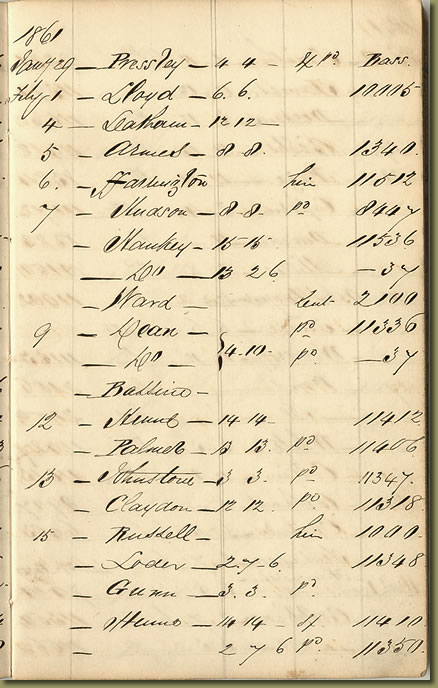 1861
Jany 29 — Pressley — 4 4 — Ex pd Bass
Feby 1 — Lloyd — 6. 6. 10005
4 — Latham — 12 12 —
5 — Armes — 8 8. 1340.
6. — Farrington hire 11512
7 — Hudson — 8 8 — pd 8447
— Hankey — 15 15 — 11536
— Do — 13 2 6. — 37
— Ward — Lent — 2100
9 — Dean — pd 11336
— Do — 4.10. pd — 37
— Babbino —
12 — Hunt — 14 14 — 11412
— Palmer — 13 13. pd 11406
13 — Johnstone — 3 3. pd 11347.
— Claydon — 12 12. pd 11318
15 — Russell — hire 1000.
— Loder — 2. 7. 6. 11348
— Gunn — 3. 3. pd
— Hunns — 14 14 — 11410
— 2 7 6 pd 11350.